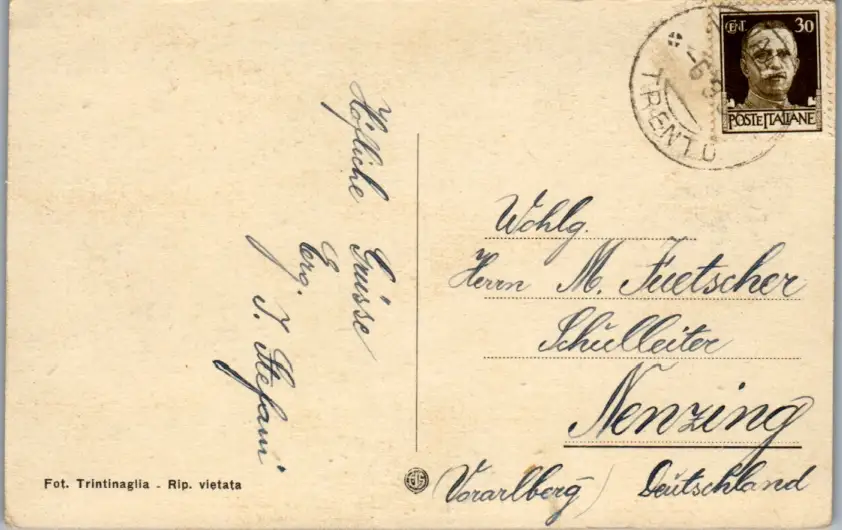 Höfliche Grüsse
Erg.
J. Stefani
CENT. 30
POSTE ITALIANE
TRENTO
Wohlg.
Herrn M. Fuetscher
Schulleiter
Nenzing
(Vorarlberg) Deutschland
Fot. Trintinaglia - Rip. vietata